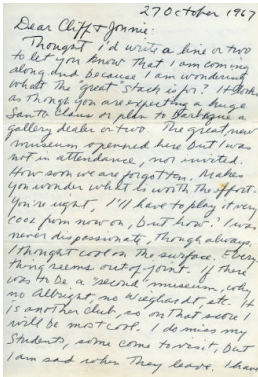 27 October 1967
Dear Cliff & Jonnie:
Thought I'd write a line or two
to let you know that I am coming
along and because I am wondering
what the "great" stack is for? It looks
as though you are expecting a huge
Santa Claus or plan to barbeque a
gallery dealer or two. The great new
museum openned here but I was
not in attendance, nor invited.
How soon we are forgotten. Makes
you wonder what is worth the effort.
You're right, I'll have to play it very
cool from now on, but how? I was
never dispassionate, though always,
I thought cool on the surface. Every-
thing seems out of joint. If there
was to be a "second" museum, why
no Albright, no Wieghardt, etc. It
is another club, so on that score I
will be most cool. I do miss my
students, some come to visit, but
I am sad when they leave. I have